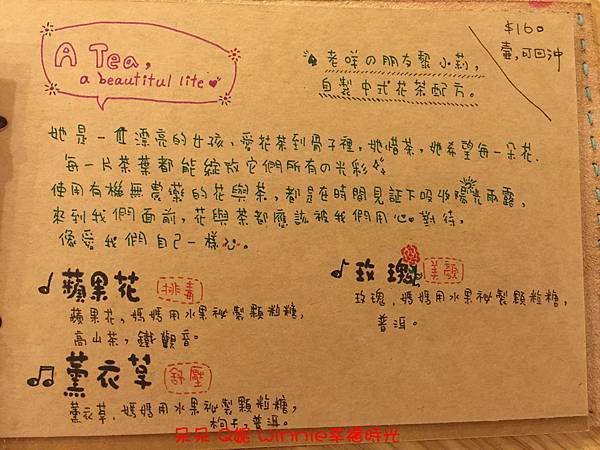 A Tea,
a beautiful life
老咩の朋友黎小莉,
自製中式花茶配方。
$160
壺,可回沖
她是一位漂亮的女孩,愛花茶到骨子裡,她惜茶,她希望每一朵花.
每一片茶葉都能綻放它們所有の光彩
使用有機無農藥的花與茶,都是在時間見証下吸收陽光雨露,
來到我們面前,花與茶都應該被我們用心對待,
像愛我們自己一樣心。
蘋果花 排毒
蘋果花,媽媽用水果祕製顆粒糖,
高山茶,鐵觀音。
玫瑰 美顏
玫瑰,媽媽用水果祕製顆粒糖,
普洱。
薰衣草 舒壓
薰衣草,媽媽用水果祕製顆粒糖,
枸子,普洱。
朵朵 Q妮 Winnie幸福時光